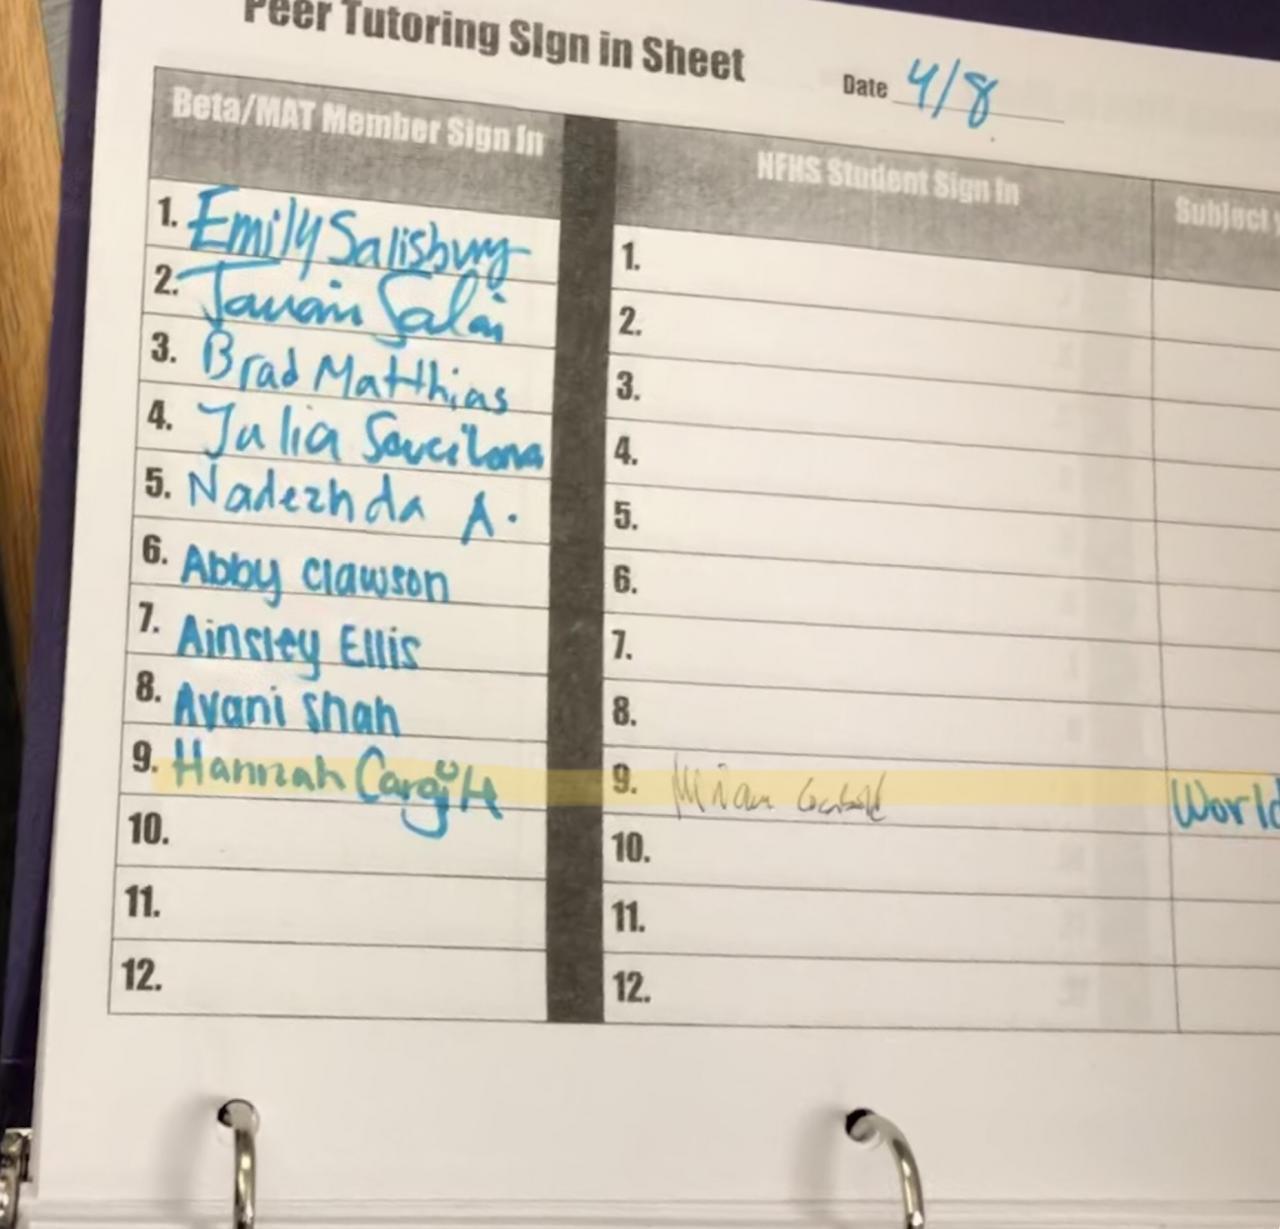 Peer Tutoring Sign in Sheet
Date 4/8
Beta/MAT Member Sign In
NFHS Student Sign In
Subject
1. Emily Salisbury
1.
2.
2.
3. Brad Matthias
3.
4. Julia
4.
5. Nadezhda A.
5.
6. Abby Clawson
6.
7. Ainsley Ellis
7.
8. Avani Shah
8.
9. Hannah
9.
World
10.
10.
11.
11.
12.
12.